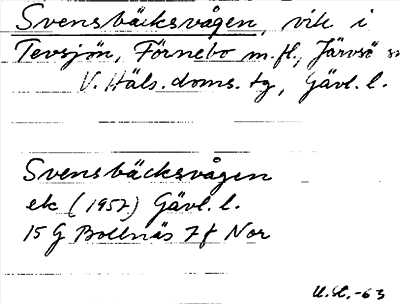 Svensbäcksvågen, vik i
Tevsjön, Förnebo m.fl., Järvsö sn
V. Häls. doms. tg, Gävl. l.
Svensbäcksvågen
ek (1957) Gävl. l.
15 G Bollnäs 7f Nor
U.St.-63